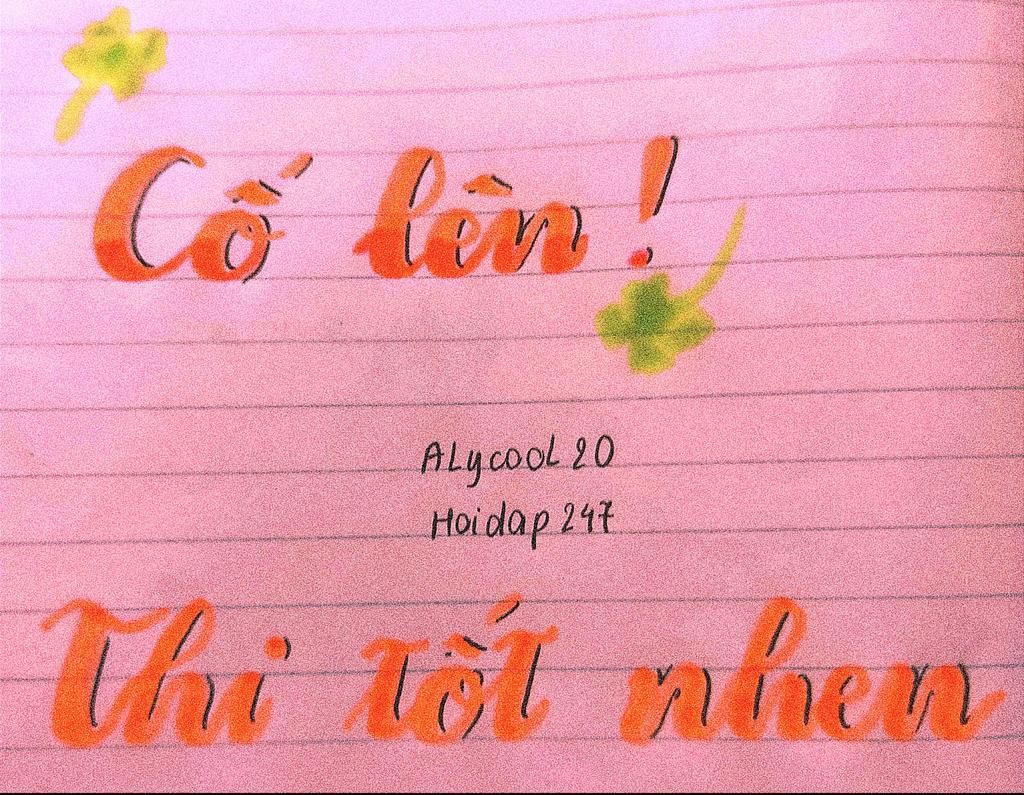 Cố lên!
ALycooL 20
Hoidap 247
Thi tốt nhen